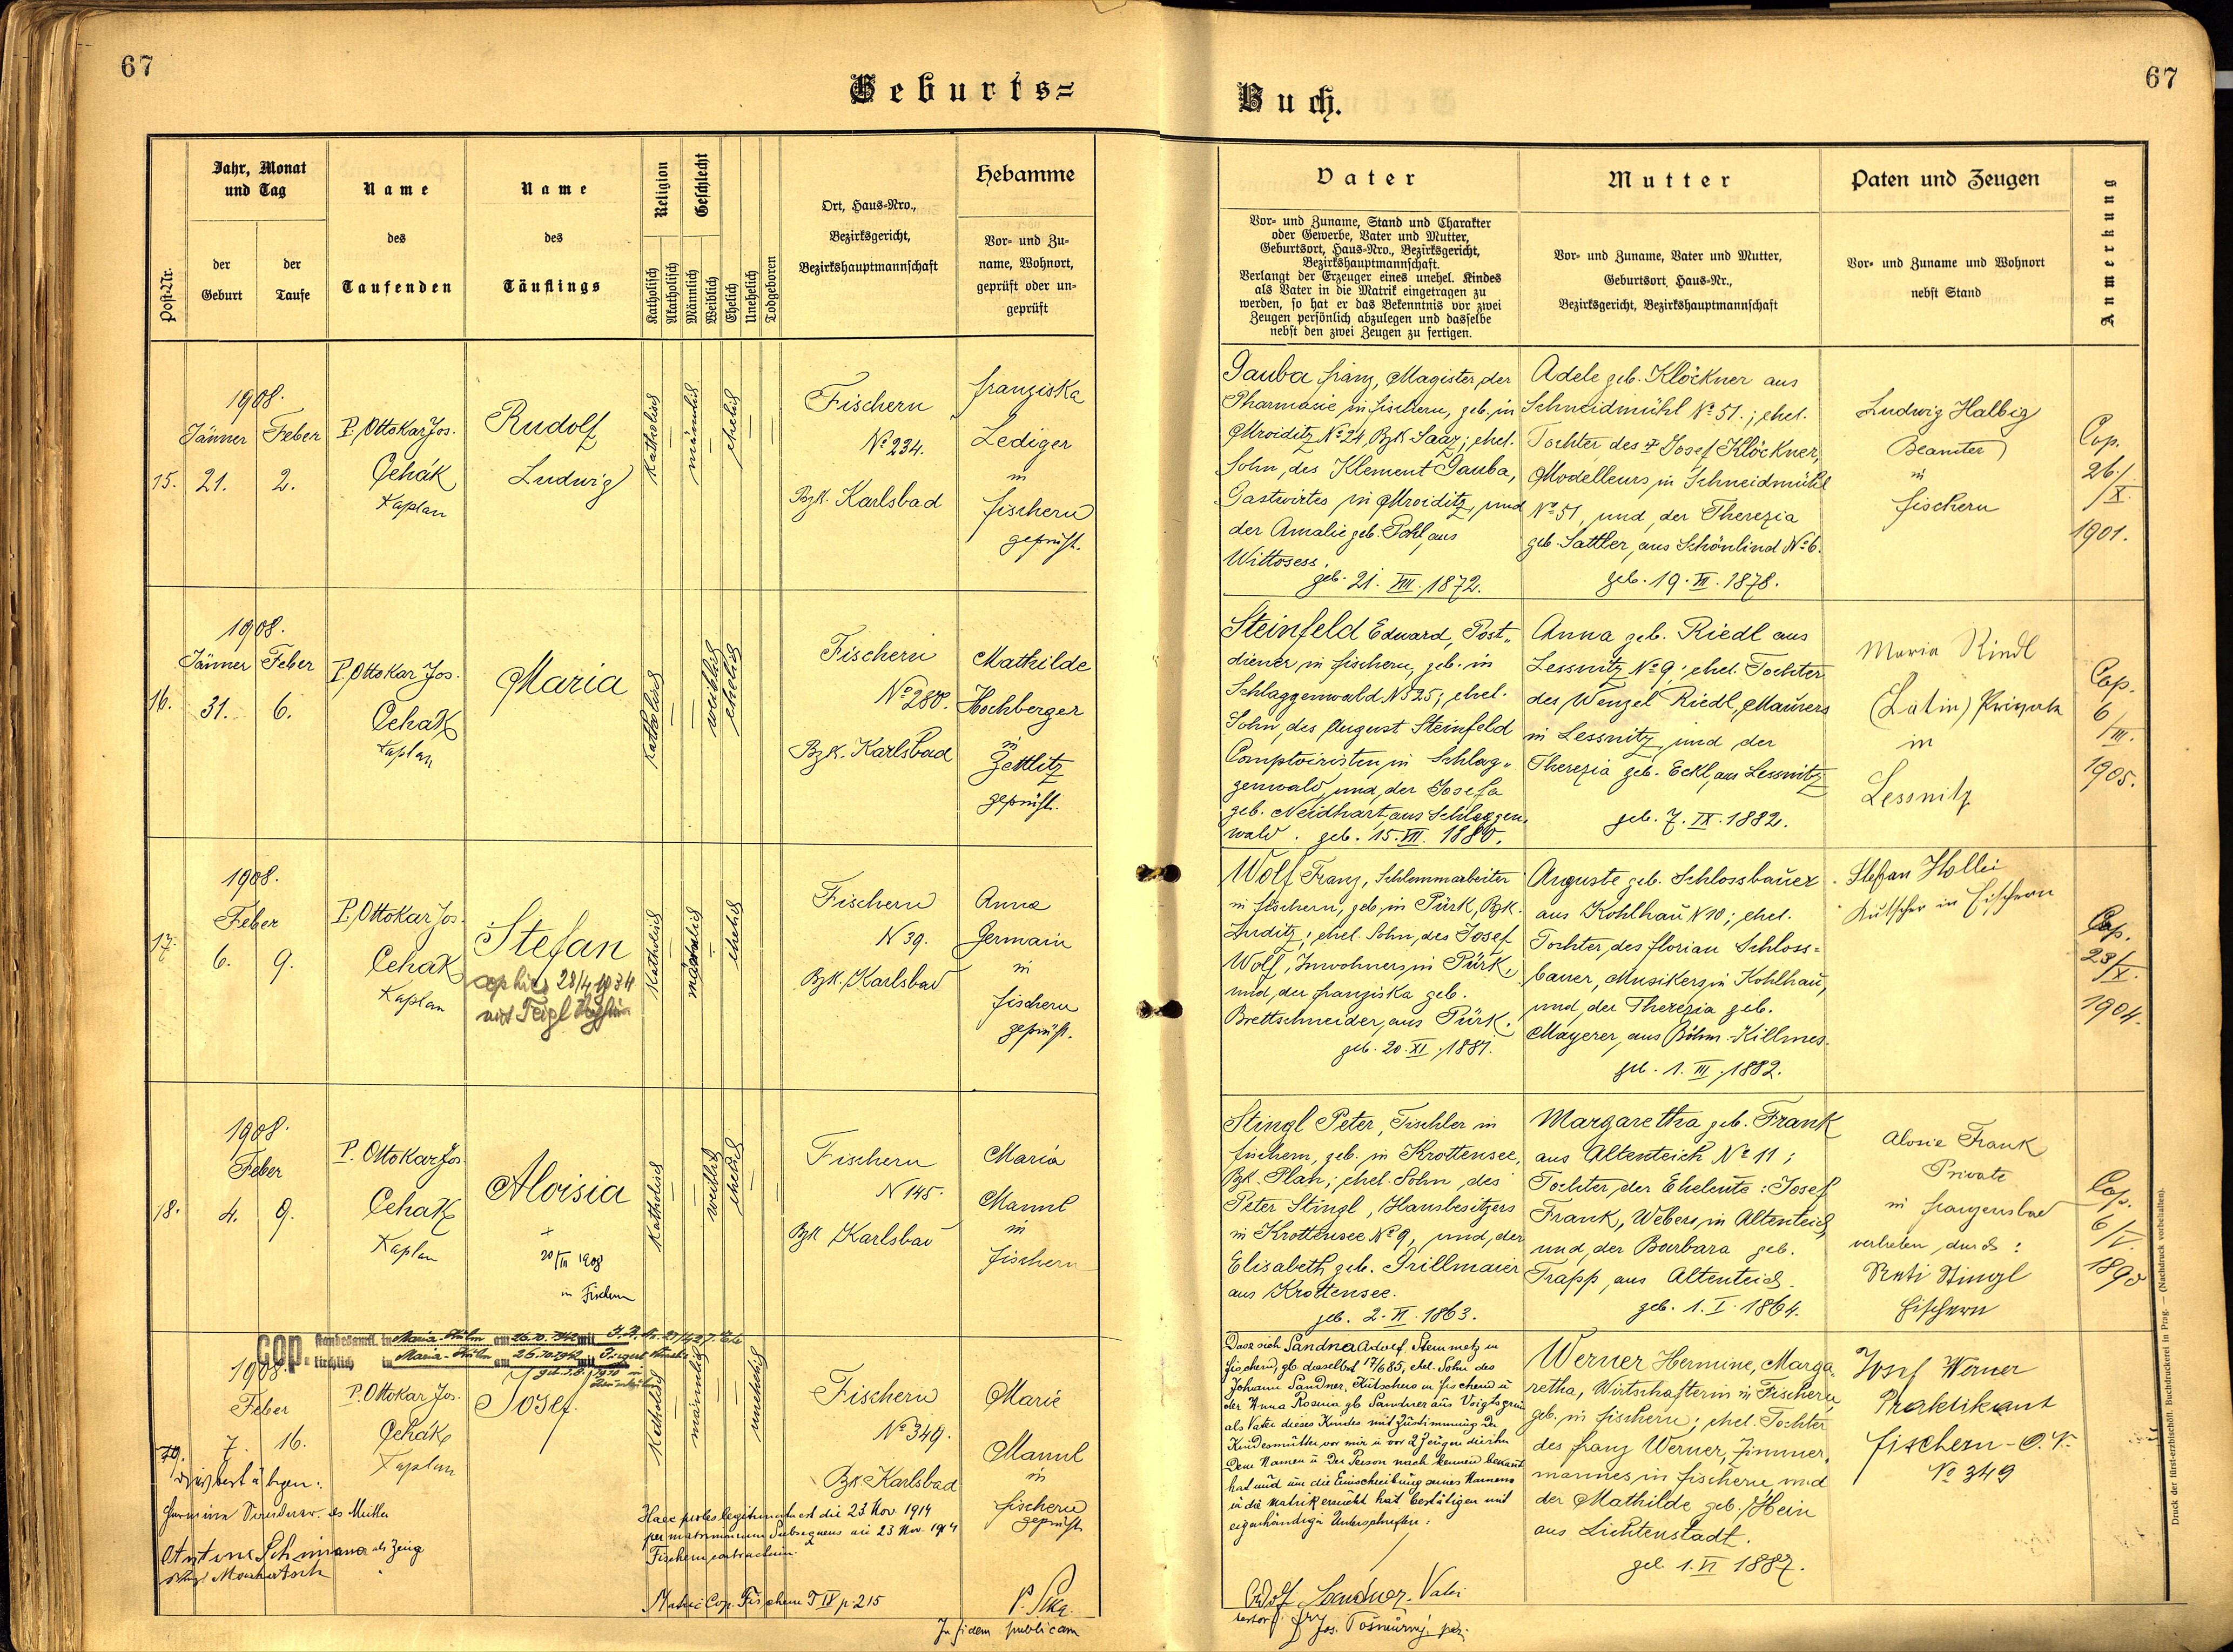 67
67
Geburts=
Buch.
Post-Nr.
Jahr, Monat
und Tag
der
Geburt
der
Taufe
Name
des
Taufenden
Name
des
Täuflings
Religion
Katholisch
Akatholisch
Geschlecht
Männlich
Weiblich
Ehelich
Unehelich
Todgeboren
Ort, Haus-Nro.,
Bezirksgericht,
Bezirkshauptmannschaft
Hebamme
Vor- und Zu-
name, Wohnort,
geprüft oder un-
geprüft
Vater
Vor- und Zuname, Stand und Charakter
oder Gewerbe, Vater und Mutter,
Geburtsort, Haus-Nro., Bezirksgericht,
Bezirkshauptmannschaft.
Verlangt der Erzeuger eines unehel. Kindes
als Vater in die Matrik eingetragen zu
werden, so hat er das Bekenntnis vor zwei
Zeugen persönlich abzulegen und dasselbe
nebst den zwei Zeugen zu fertigen.
Mutter
Vor- und Zuname, Vater und Mutter,
Geburtsort, Haus-Nr.,
Bezirksgericht, Bezirkshauptmannschaft
Paten und Zeugen
Vor- und Zuname und Wohnort
nebst Stand
Anmerkung
15.
1908.
Jänner Feber
21. 2.
P. Ottokar Jos.
Čehák
Kaplan
Rudolf
Ludwig
katholisch
männlich
ehelich
Fischern
No 234.
Bzk. Karlsbad
Franziska
Lediger
in
Fischern
geprüft.
Gauba Franz, Magister der
Pharmacie in Fischern, geb. in
Mroiditz No 24, Bzk Saaz; ehel.
Sohn, des Klement Gauba,
Gastwirtes in Mroiditz, und
der Amalie geb. Pohl, aus
Wittosess.
geb. 21. VIII. 1872.
Adele geb. Klöckner aus
Schneidmühl No 51.; ehel.
Tochter des † Josef Klöckner,
Modelleurs, in Schneidmühl
No 51, und der Therezia
geb. Sattler, aus Schönlind No 6.
geb. 19. VI. 1878.
Ludwig Halbig
Beamter
in
Fischern
Cop.
26./
/X.
1901.
16.
1908.
Jänner Feber
31. 6.
P. Ottokar Jos.
Čehák
Kaplan
Maria
katholisch
weiblich
ehelich
Fischern
No 280.
Bzk. Karlsbad
Mathilde
Hochberger
in
Zettlitz
geprüft.
Steinfeld Edward, Post„
diener in Fischern, geb. in
Schlaggenwald N 525; ehel.
Sohn, des August Steinfeld
Comptoiristen, in Schlag„
genwald, und der Josefa
geb. Neidhart, aus Schlaggen„
wald. geb. 15. VII. 1880.
Anna geb. Riedl aus
Lessnitz No 9; ehel. Tochter
des Wenzel Riedl, Maurers
in Lessnitz, und der
Therezia geb. Eckl, aus Lessnitz
geb. 7. IX. 1882.
Maria Riedl
in
Lessnitz
Cop.
6
/III.
1905.
17.
1908.
Feber
6. 9.
P. Ottokar Jos.
Čehák
Kaplan
Stefan
28/4 1934
mit Feigl
katholisch
männlich
ehelich
Fischern
N 39.
Bzk. Karlsbad
Anna
Germain
in
Fischern
geprüft.
Wolf Franz, Schlemmarbeiter
in Fischern, geb. in Pürk, Bzk.
Luditz; ehel. Sohn, des Josef
Wolf, Inwohners, in Pürk,
und, der Franziska geb.
Brettschneider, aus Pürk.
geb. 20. XI. 1881.
Auguste geb. Schlossbauer
aus Kohlhau N 10; ehel.
Tochter, des Florian Schloss=
bauer, Musikers, in Kohlhau,
und, der Therezia geb.
Mayerer, aus Böhm.-Killmes.
geb. 1. III. 1882.
Stefan Hollei
Kutscher in Fischern
Cop.
23/
X.
1904.
18.
1908.
Feber
4. 9.
P. Ottokar Jos.
Čehák
Kaplan
Aloisia
+
1908
in Fischern
katholisch
weiblich
ehelich
Fischern
N 145.
Bzk Karlsbad
Maria
Mannl
in
Fischern
Stingl Peter, Tischler in
Fischern, geb. in Krottensee,
Bzk. Plan; ehel. Sohn, des
Peter Stingl, Hausbesitzers
in Krottensee No 9, und, der
Elisabeth geb. Grillmaier
aus Krottensee.
geb. 2. VI. 1863.
Margaretha geb. Frank
aus Altenteich No 11;
Tochter der Eheleute: Josef
Frank, Webers, in Altenteich
und, der Barbara geb.
Trapp, aus Altenteich.
geb. 1. I. 1864.
Aloisie Frank
Private
in Franzensbad
vertreten durch:
Stingl
Fischern
Cop.
6/
V.
1890
cop. standesamtl. in Maria-Kulm am 26.10.1942 mit
kirchlich in Maria-Kulm am 26.10.1942 mit
19.
1908
Feber
7. 16.
P. Ottokar Jos.
Čehák
Kaplan
Josef.
katholisch
männlich
unehelich
Fischern
No 349.
Bzk Karlsbad
Marie
Mannl
in
Fischern
geprüft
Dass sich Sandner Adolf, Steinmetz in
Fischern, gb daselbst 17/6 85, ehel. Sohn des
Johann Sandner, Kutschers in Fischern u
der Anna Rosina gb Sandner aus Voigtsgrün
als Vater dieses Kindes mit Zustimmung der
Kindesmutter vor mir u vor 2 Zeugen die ihn
dem Namen u der Person nach kennen bekannt
hat und um die Einschreibung seines Namens
in die Matrik ersucht hat bestätigen mit
eigenhändiger Unterschriften:
Adolf Sandner. Vater
Werner Hermine, Marga„
retha, Wirtschafterin in Fischern,
geb. in Fischern; ehel. Tochter
des Franz Werner, Zimmer„
mannes in Fischern, und
der Mathilde geb. Hein
aus Lichtenstadt.
geb. 1. VI 1887.
Josef Werner
Praktikant
Fischern
No 349
Hermine Sandner als Mutter
als Zeuge
Haec proles legitimata est die 23 Nov 1914
per matrimonium subsequens die 23 Nov. 1914
Fischern contractum.
Matric Cop. Fischern T IX p 215
In fidem publicam
Druck der fürst-erzbischöfl. Buchdruckerei in Prag. — (Nachdruck vorbehalten).